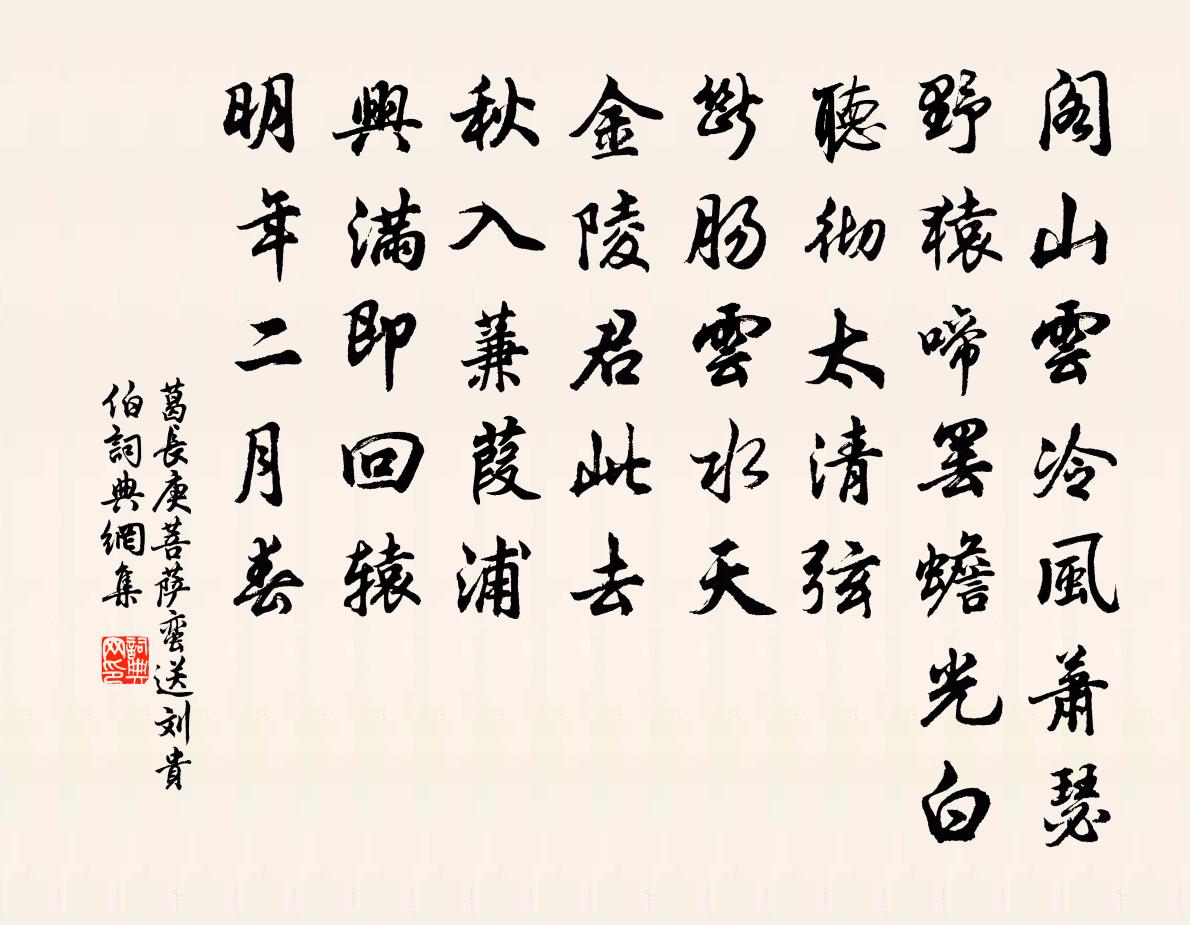 閣山雲冷風蕭瑟
野猿啼罢蟾光白
聽彻太清弦
斷肠雲水天
金陵君此去
秋入蒹葭浦
興滿即回辕
明年二月春
葛長庚菩萨蛮送刘貴
伯詞典網集
詞典
网印